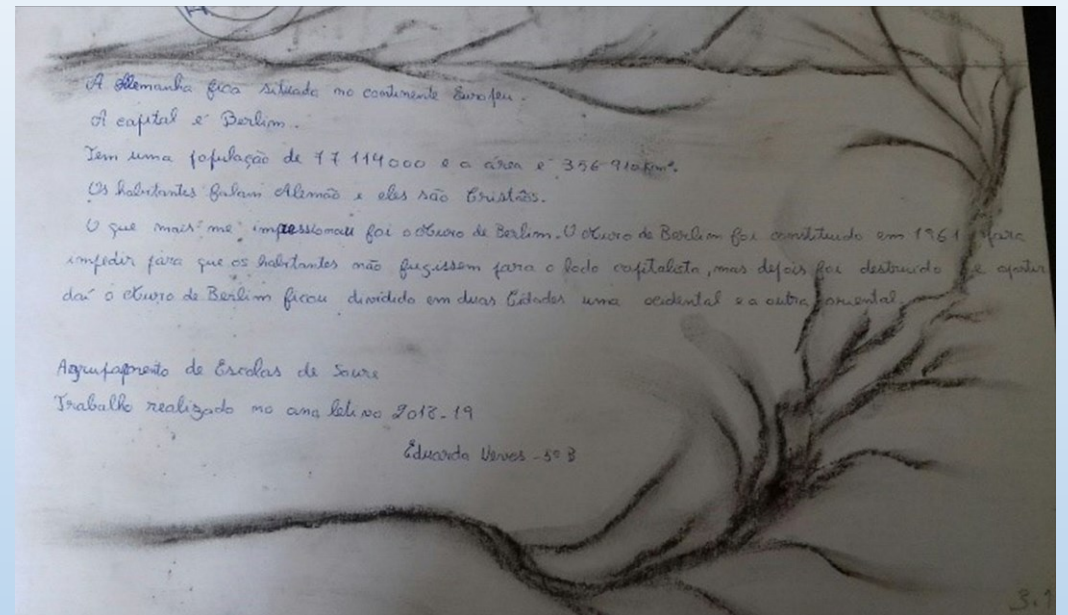 A Alemanha fica situada no continente Europeu.
A capital é Berlim.
Tem uma população de 77 114000 e a área é 356 910 km².
Os habitantes falam Alemão e eles são Cristãos.
O que mais me impressionou foi o Muro de Berlim. O Muro de Berlim foi constituido em 1961 para
impedir para que os habitantes não fugissem para o lado capitalista, mas depois foi destruido e apartir
daí o Muro de Berlim ficou dividido em duas Cidades uma ocidental e a outra oriental.
Agrupamento de Escolas de Soure
Trabalho realizado no ano letivo 2018-19
Eduarda Neves - 5º B